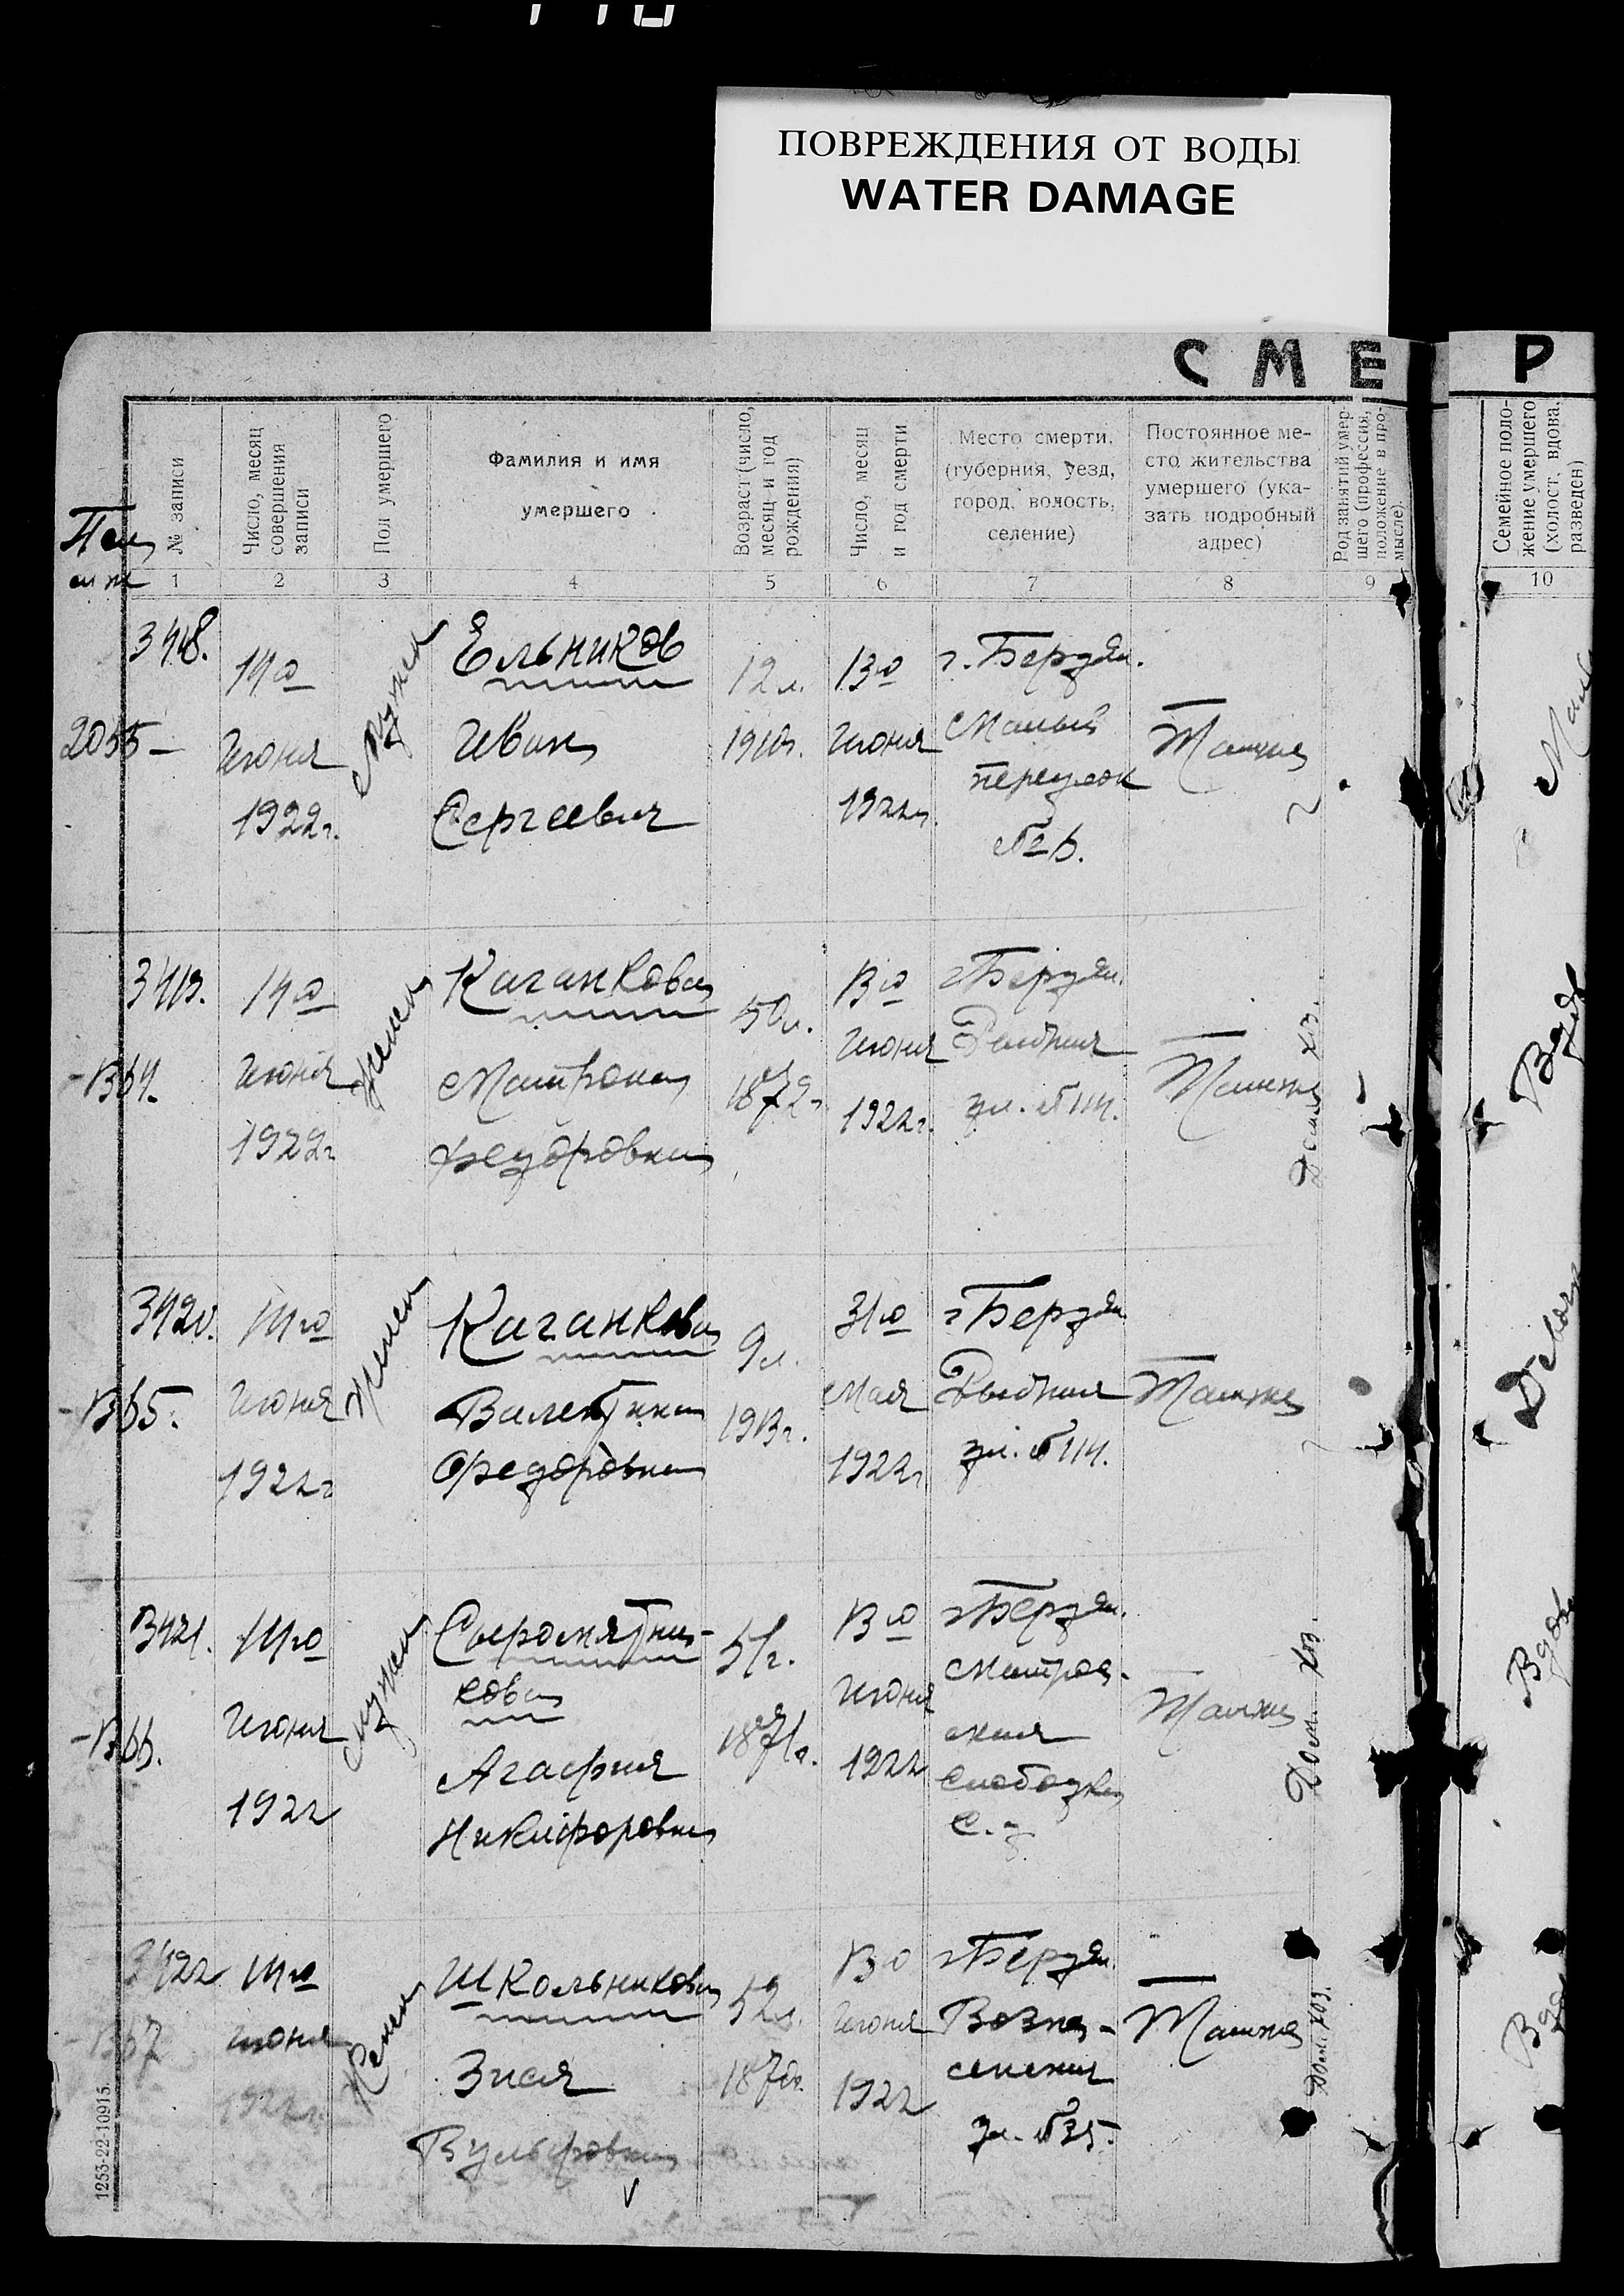 ПОВРЕЖДЕНИЯ ОТ ВОДЫ
WATER DAMAGE
С М Е Р
№ записи
Число, месяц
совершения
записи
Пол умершего
Фамилия и имя
умершего
Возраст (число,
месяц и год
рождения)
Число, месяц
и год смерти
Место смерти,
(губерния, уезд,
город, волость,
селение)
Постоянное ме-
сто жительства
умершего (ука-
зать подробный
адрес)
Род занятий умер-
шего (профессия,
положение в про-
мысле).
Семейное поло-
жение умершего
(холост, вдова,
разведен)
1 2 3 4 5 6 7 8 9 10
3418.
2055 –
14го
Июня
1922г.
Мужск
Ельников
Иван
Сергеевич
12 л.
1910г.
13го
Июня
1922г.
г. Бердян.
Малый
переулок
Там же
3419.
14го
Июня
1922г
Женск
Каганкова
Матрона
Федоровна
50 л.
1872г
13го
Июня
1922г.
г Бердян.
ул. № 114.
Там же
Дом. хоз.
Вдова
3420.
14го
Июня
1922г
Женск
Каганкова
Валентина
Федоровна
9 л.
1913г.
31го
Мая
1922г.
г Бердян
ул. № 114.
Там же
3421.
14го
Июня
1922
Мужск
Сыромятни-
кова
Агафия
Никифоровна
51г.
1871г.
13го
Июня
1922
г Бердян.
слободка
Там же
Дом. хоз.
Вдова
3422
14го
июня
1922г.
Женск
Школьникова
Зися
Вульфовна
52 л.
1870г.
13го
Июня
1922
г Бердян.
Возне-
сенская
ул. № 35.
Там же
Дом. хоз.
1253-22-10915.